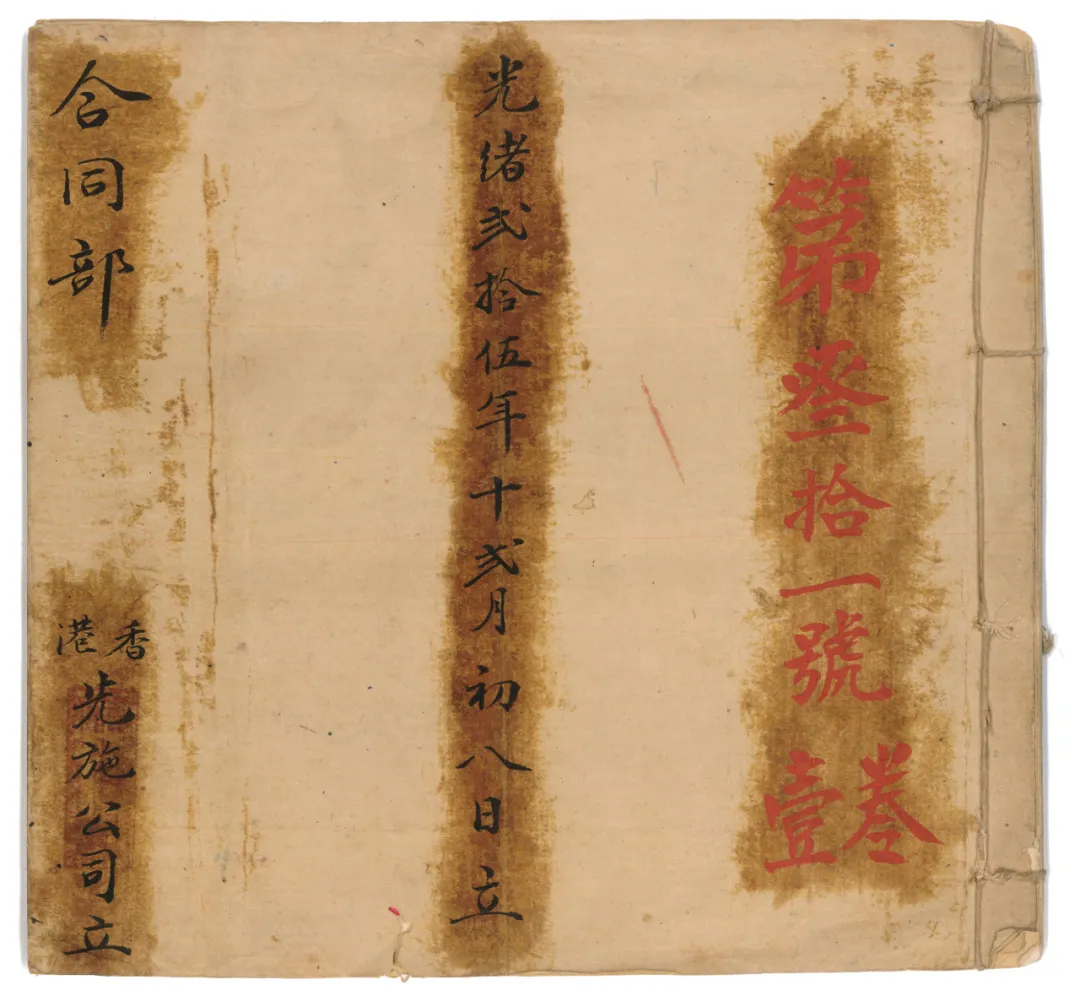 第叁拾一號
卷壹
光緒弍拾伍年十弍月初八日立
合同部
香港
先施公司立